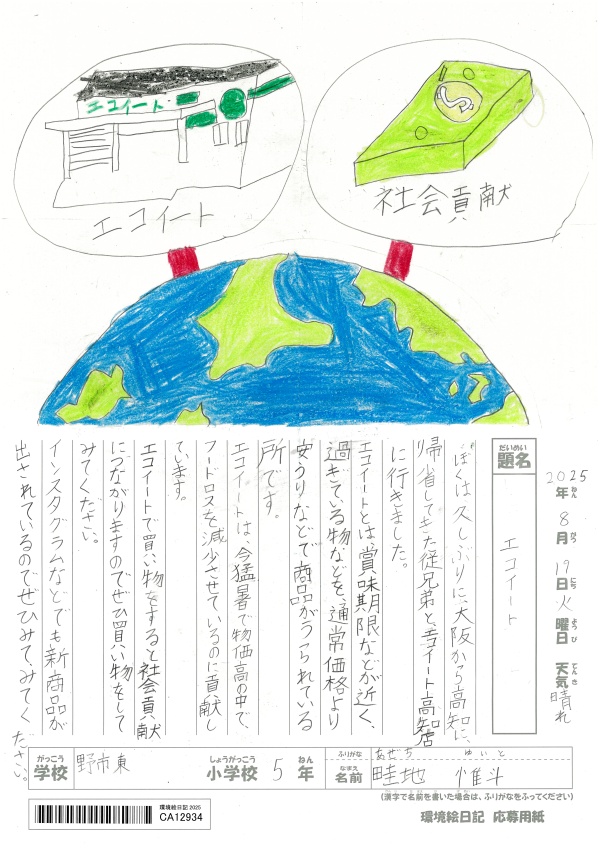 エコイート
エコイート
社会貢献
2025年ねん8月がつ19日にち火曜日ようび天気てんき晴れ
だいめい
題名
エコイート
ぼくは久しぶりに、大阪から高知に、
帰省してきた従兄弟と、エコイート高知店
に行きました。
エコイートとは、賞味期限などが近く、
過ぎている物などを、通常価格より
安うりなどで商品がうられている
所です。
エコイートは、今猛暑で物価高の中で、
フードロスを減少させているのに貢献し
ています。
エコイートで買い物をすると社会貢献
につながりますのでぜひ買い物をして
みてください。
インスタグラムなどでも新商品が
出されているのでぜひみて、みてください。
がっこう
学校
野市東
しょうがっこう
小学校
5
ねん
年
ふりがな
あぜち ゆいと
なまえ
名前
畦地 惟斗
(漢字で名前を書いた場合は、ふりがなをふってください)
環境絵日記 2025
CA12934
環境絵日記 応募用紙